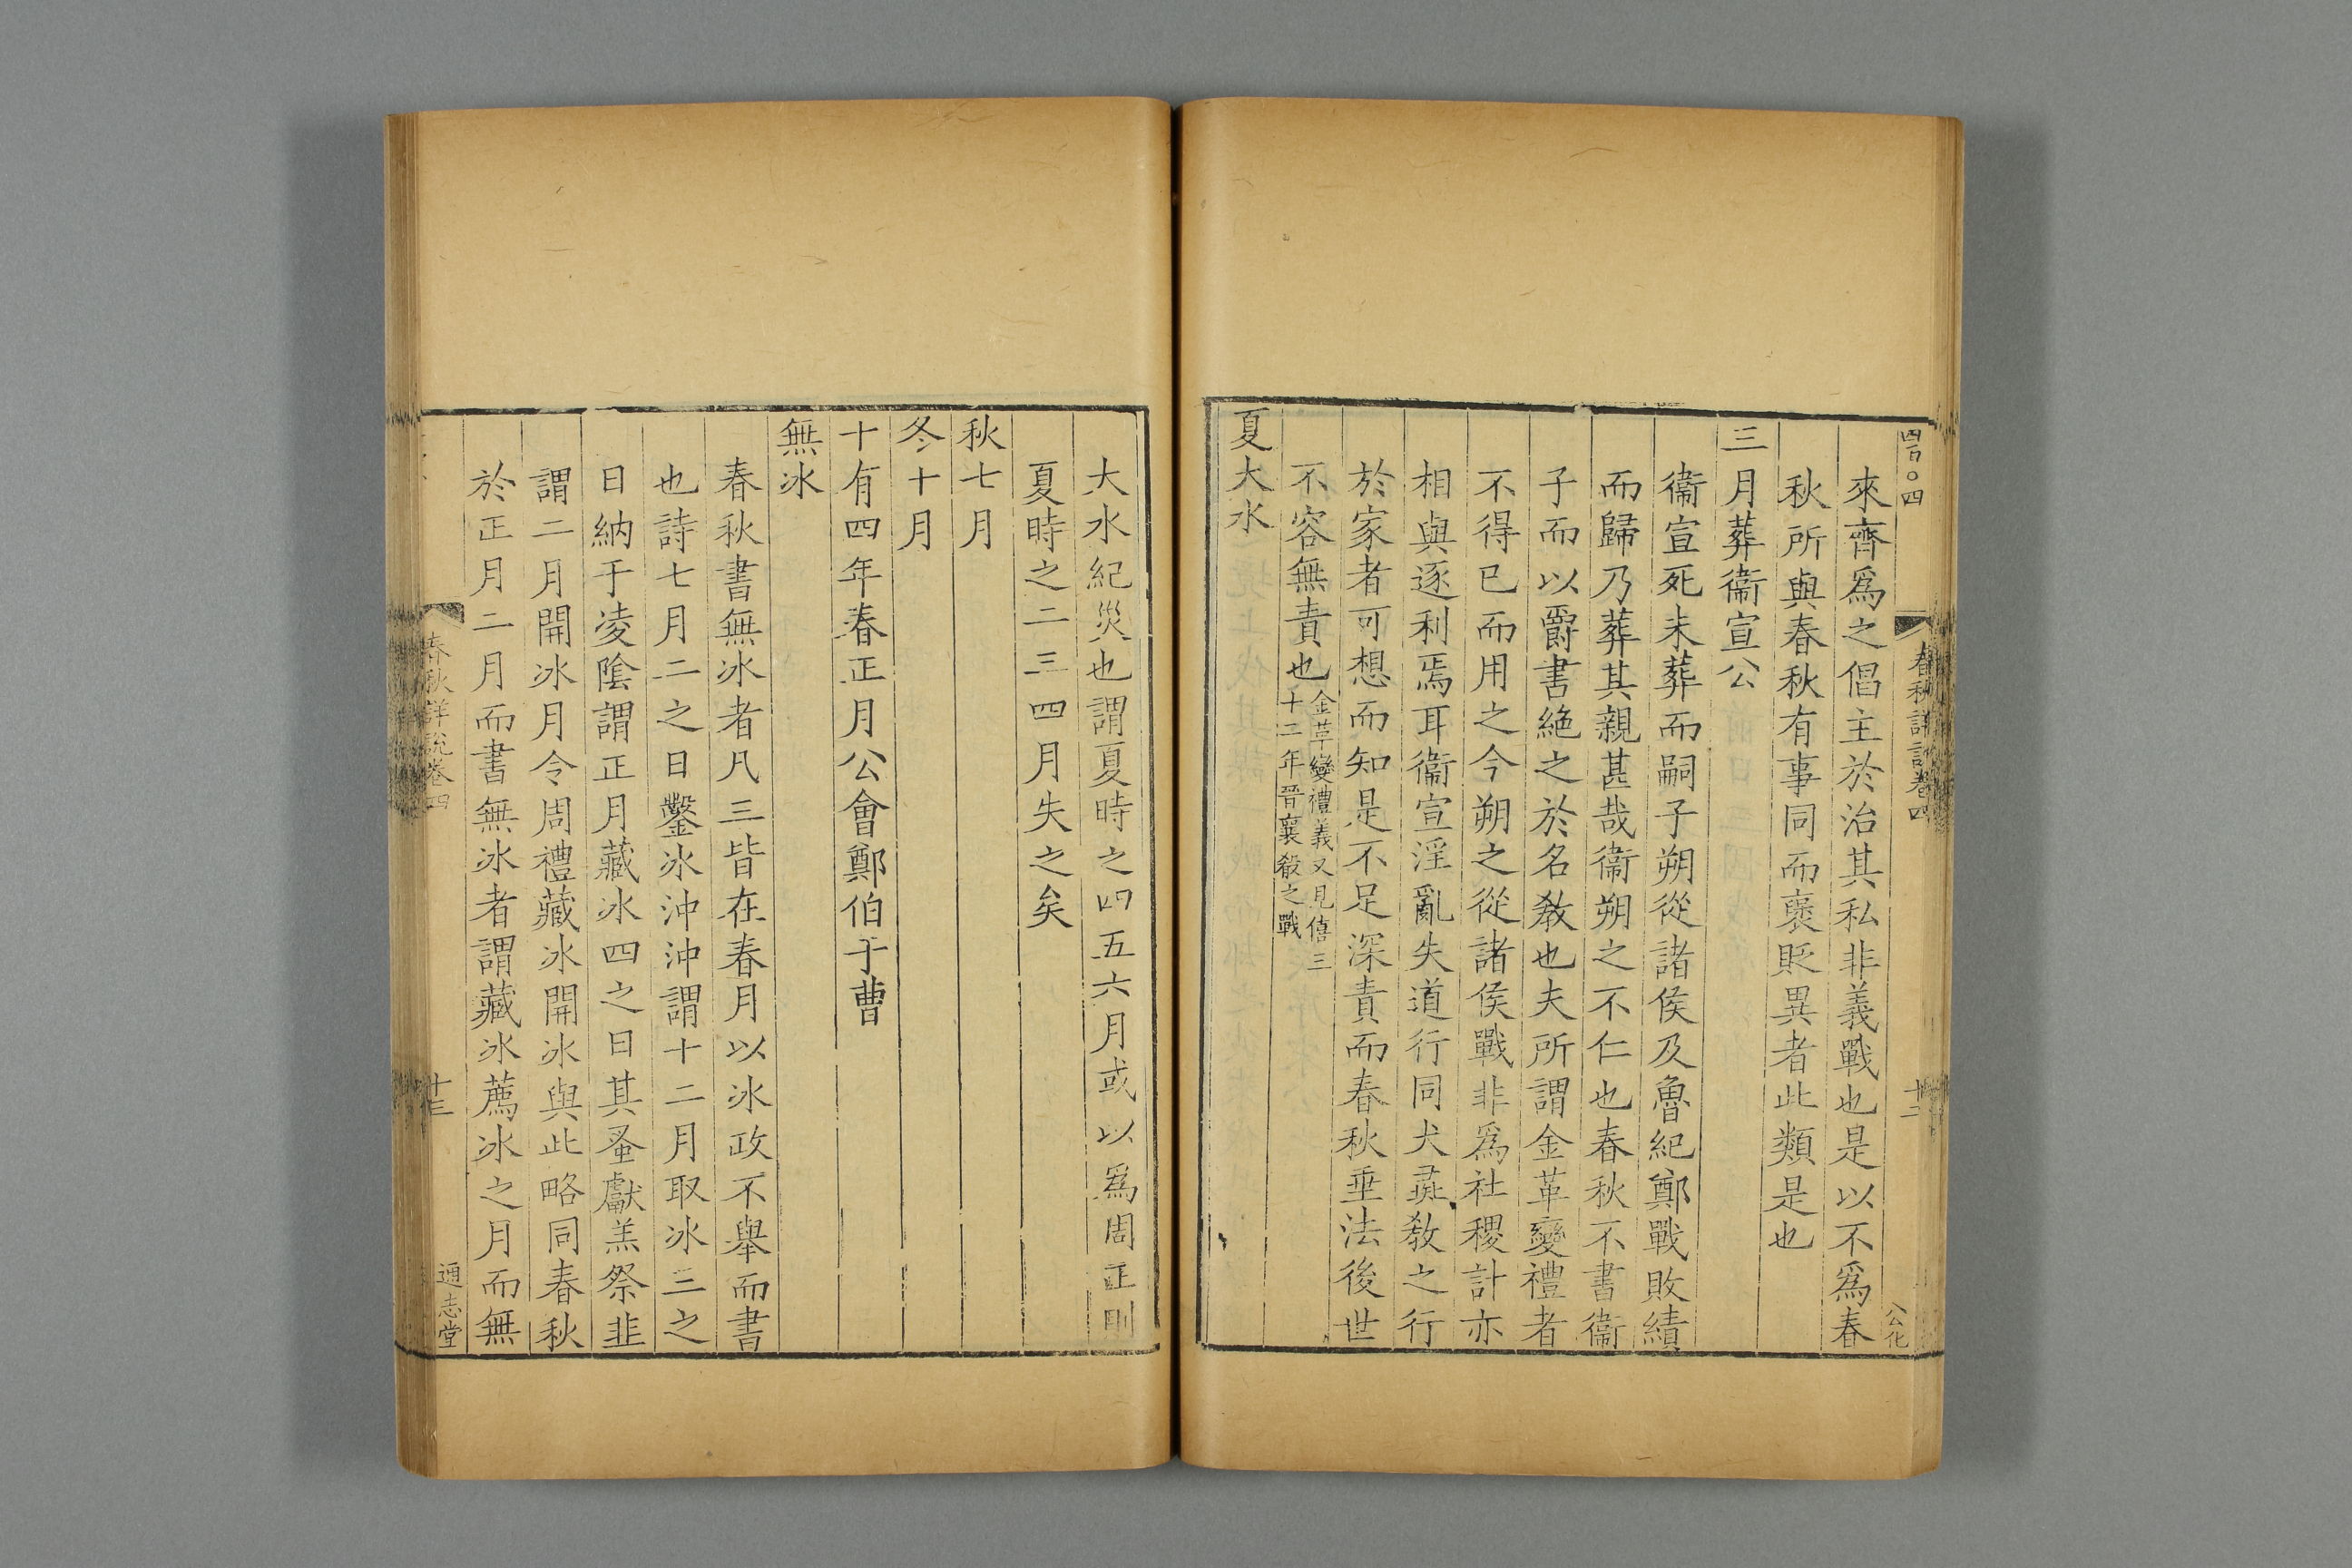 四百〇四
春秋詳說卷四
十二
公化
來齊爲之倡主於治其私非義戰也是以不爲春
秋所與春秋有事同而襃貶異者此類是也
三月葬衞宣公
衞宣死未葬而嗣子朔從諸侯及魯紀鄭戰敗績
而歸乃葬其親甚哉衞朔之不仁也春秋不書衞
子而以爵書絶之於名敎也夫所謂金革變禮者
不得已而用之今朔之從諸侯戰非爲社稷計亦
相與逐利焉耳衞宣淫亂失道行同犬彘敎之行
於家者可想而知是不足深責而春秋垂法後世
不容無責也金革變禮義又見僖三
十二年晉襄殽之戰
夏大水
大水紀災也謂夏時之四五六月或以爲周正則
夏時之二三四月失之矣
秋七月
冬十月
十有四年春正月公會鄭伯于曹
無冰
春秋書無冰者凡三皆在春月以冰政不舉而書
也詩七月二之日鑿冰沖沖謂十二月取冰三之
日納于凌陰謂正月藏冰四之日其蚤獻羔祭韭
謂二月開冰月令周禮藏冰開冰與此略同春秋
於正月二月而書無冰者謂藏冰薦冰之月而無
春秋詳說卷四
十三
通志堂